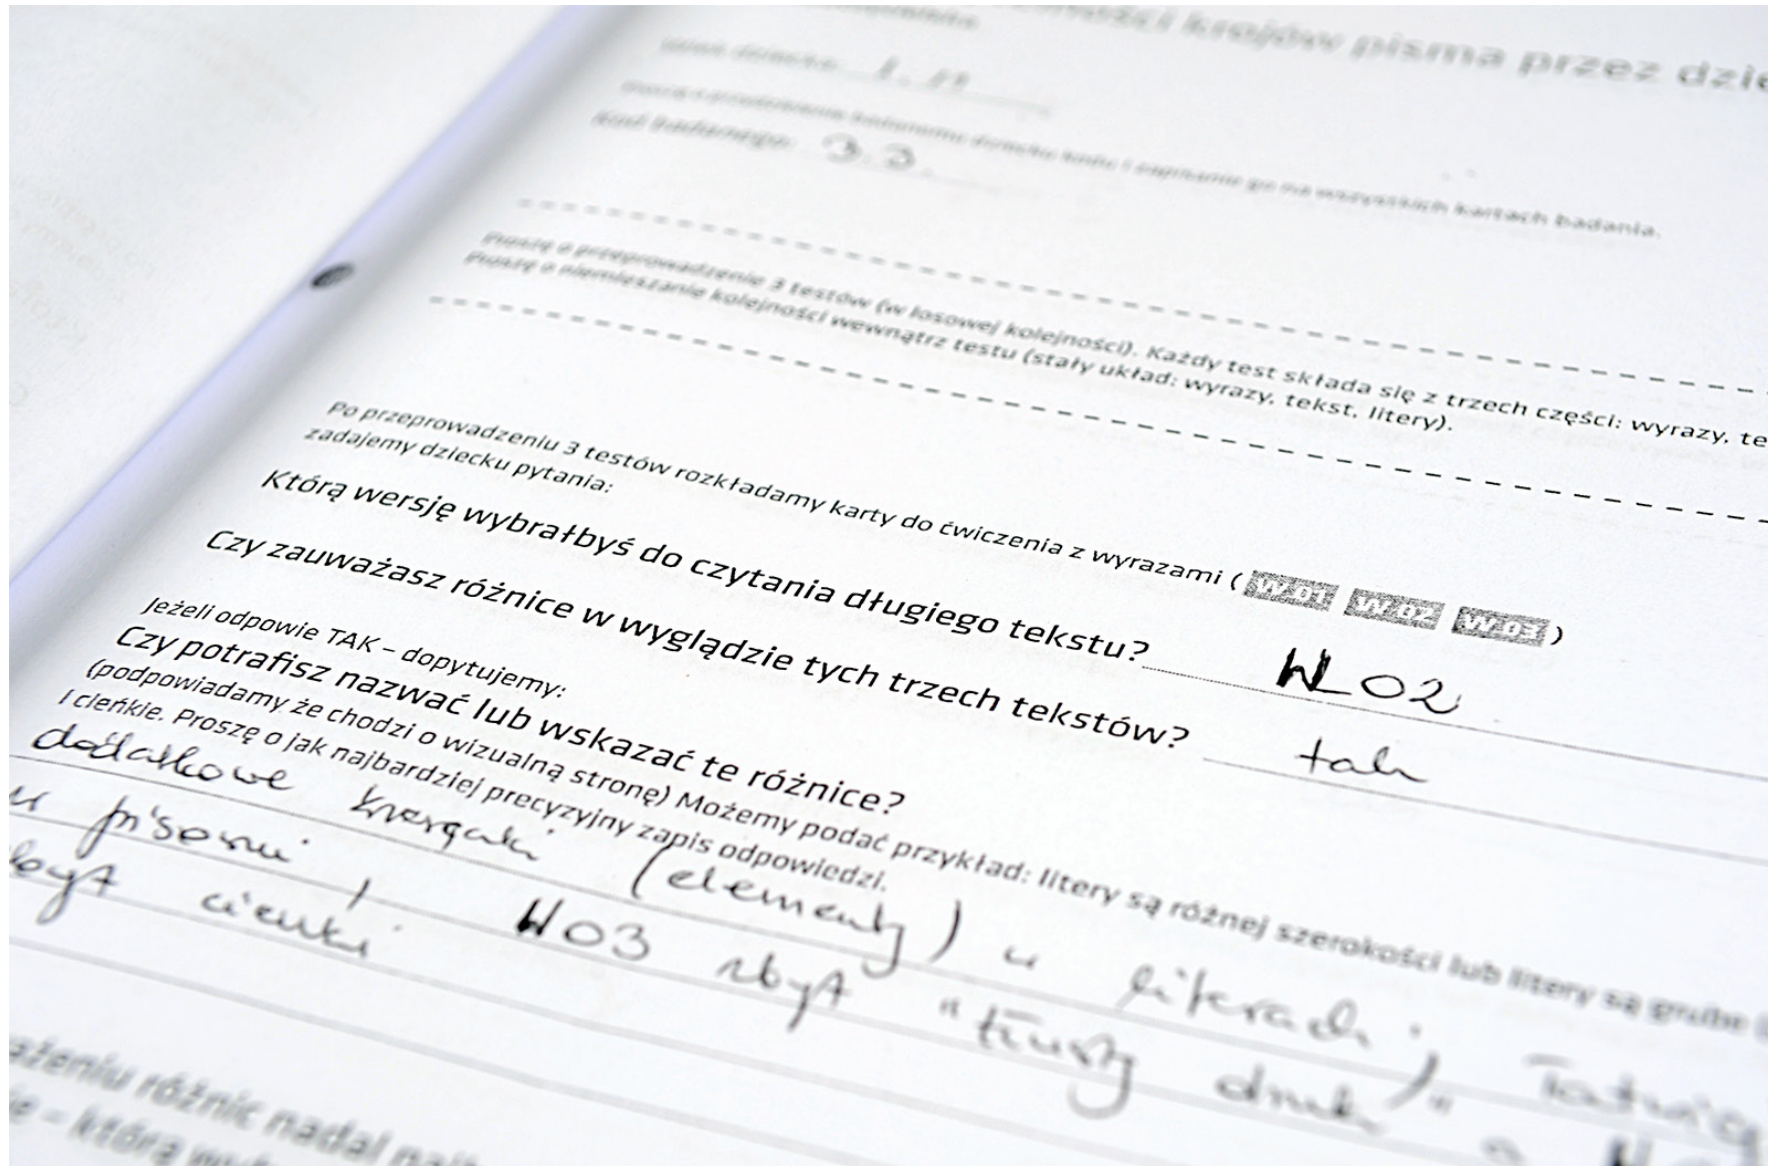 krojów pisma przez dzie
Kod badanego: 3.3.
badanemu dziecku kodu i zapisanie go na wszystkich kartach badania.
Proszę o przeprowadzenie 3 testów (w losowej kolejności). Każdy test składa się z trzech części: wyrazy, te
Proszę o niemieszanie kolejności wewnątrz testu (stały układ: wyrazy, tekst, litery).
Po przeprowadzeniu 3 testów rozkładamy karty do ćwiczenia z wyrazami ( W.01 W.02 W.03 )
zadajemy dziecku pytania:
Którą wersję wybrałbyś do czytania długiego tekstu? W 02
Czy zauważasz różnice w wyglądzie tych trzech tekstów? tak
Jeżeli odpowie TAK – dopytujemy:
Czy potrafisz nazwać lub wskazać te różnice?
(podpowiadamy że chodzi o wizualną stronę) Możemy podać przykład: litery są różnej szerokości lub litery są grube
I cieńkie. Proszę o jak najbardziej precyzyjny zapis odpowiedzi.
dodatkowe (elementy) w literach;
w W03 zbyt "tłusty druk"
zbyt cienki
ażeniu różnic nadal
ie – którą